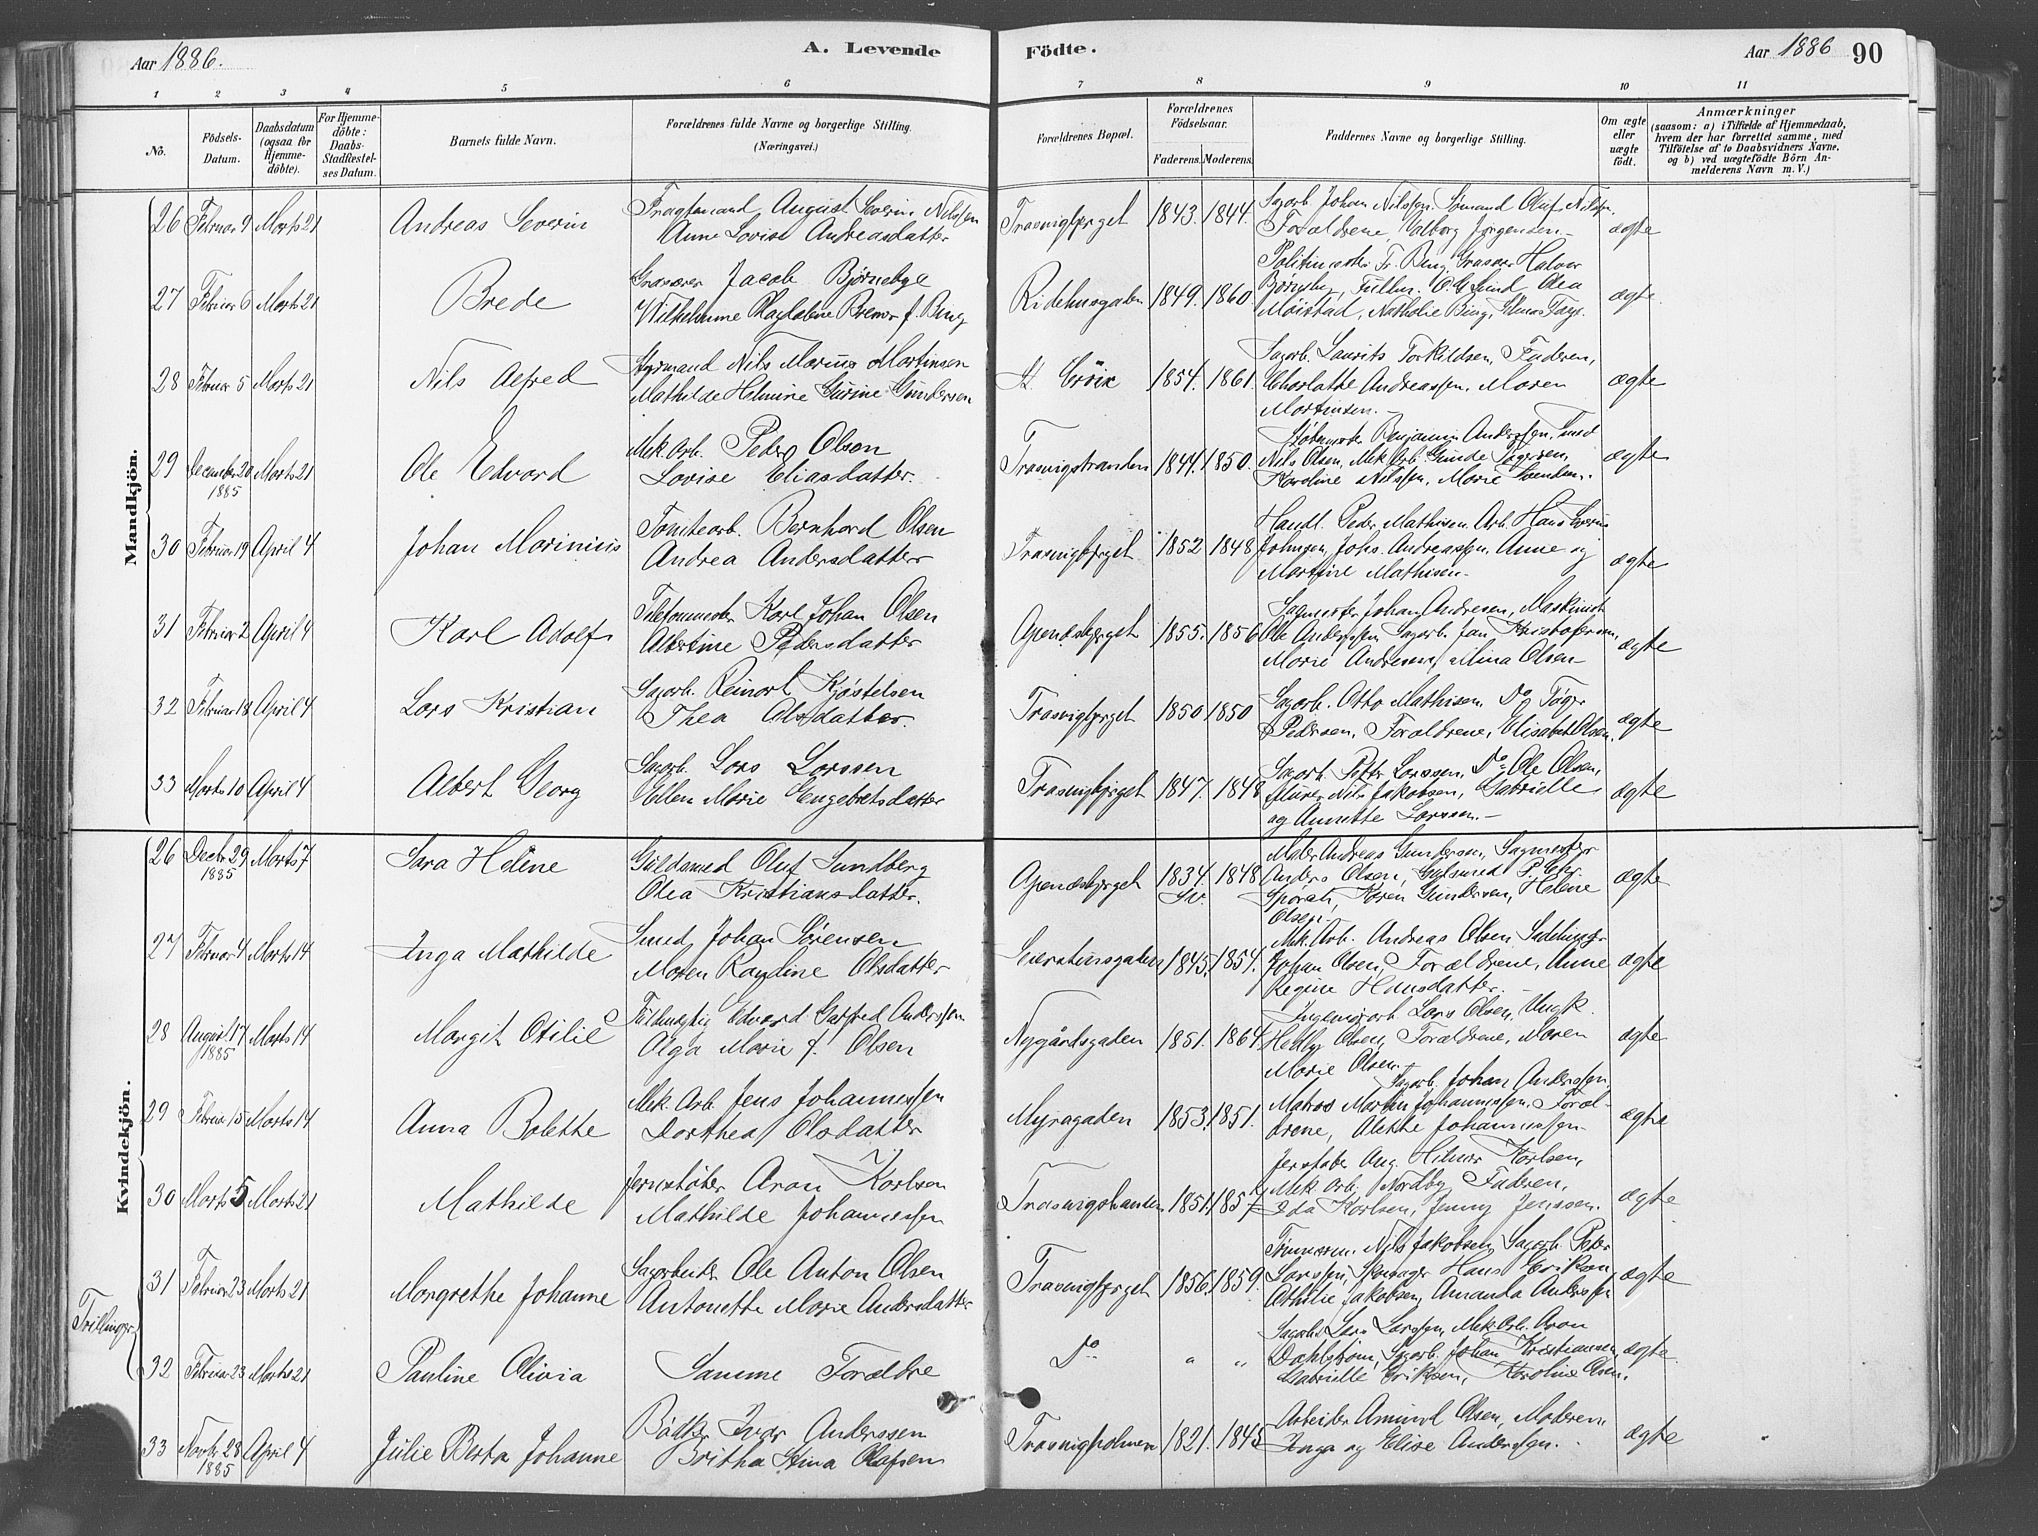 Aar 1886.
A. Levende Födte.
Aar 1886 90
1 2 3 4 5 6 7 8 9 10 11
No.
Födsels-Datum.
Daabsdatum (ogsaa for Hjemme-döbte).
For Hjemme-döbte: Daabs-Stadfæstel-ses Datum.
Barnets fulde Navn.
Forældrenes fulde Navne og borgerlige Stilling.
(Næringsvei.)
Forældrenes Bopæl.
Forældrenes Födselsaar.
Faderens. Moderens.
Faddernes Navne og borgerlige Stilling.
Om ægte eller uægte födt.
Anmærkninger
(saasom: a) i Tilfælde af Hjemmedaab,
hvem der har forrettet samme, med
Tilföielse af to Daabsvidners Navne,
og b) ved uægtefödte Börn An-
melderens Navn m. V.)
Mandkjön.
26 Februar 9 Marts 21 Andreas Severin
Fragtemand August Severin Nilssen
Anne Lovise Andreasdatter
Trasvigbjrget 1843. 1844.
Sagarb Johan Nilssen Sömand Oluf Nilsen
Forældrene, Valborg Jørgensen.
ægte
27 Februar 6 Marts 21 Brede
Grosserer Jacob Bjørneby
Wilhelmine Magdalene Bremer f. Bing
Ridehusgaden 1849. 1860.
Politimester Fr. Bing, Grosserer Halvor
Björneby, Fuldm. O. G. Lund Olea
Möistad, Nathalie Bing,
ægte.
28 Februar 5 Marts 21 Nils Alfred
Styrmand Nils Marius Martinsen
Mathilde Helmine Gurine Gundersen
St. Croix 1854. 1861.
Sagarb. Laurits Torkildsen, Faderen,
Charlotte Andreassen, Maren
Martinsen.
ægte
29 December 20 1885 Marts 21 Ole Edvard
Mek. Arb. Peder Olsen
Lovise Eliasdatter.
Trasvigstranden 1844. 1850.
Støbmester Benjamin Anderssen, Smed
Nils Olsen, Mek. Arb. Gunde
Karoline Nilssen, Marie Svendsen.
ægte
30 Februar 19 April 4 Johan Marinius
Tomtearb. Bernhard Olsen
Andrea Andersdatter
Trasvigbjrget 1852 1848
Handl. Peder Mathisen Arb. Hans Severin
Johnsen, Johs. Andreassen, Anne og
Martine Mathisen.
ægte
31 Februar 2 April 4 Karl Adolf
Karl Johan Olsen
Albertine Pedersdatter
Apenæsbjerget 1855. 1856
Sagmester Johan Andresen, Maskinist
Ole Anderssen Sagarb. Jan Kristofersen
Marie Andresen, Mina Olsen
ægte
32 Februar 18 April 4 Lars Kristian
Sagarb. Reinart Kjøstelsen
Thea Olsdatter.
Trasvigbjrget 1850 1850
Sagarb. Otto Mathisen, Do Tøger
Pedersen, Forældrene, Elisabet Olsen.
ægte
33 Marts 10 April 4 Albert Georg
Sagarb. Lars Larssen
Ellen Marie Engebretsdatter
Trasvigbjrget 1847. 1848
Sagarb. Petter Larssen, Do Ole Olsen,
Murer Nils Jakobsen, Gabrielle
og Annette Larssen.
ægte
Kvindekjön.
26 Decbr 29 1885 Marts 7 Sara Helene
Guldsmed Oluf Sundberg
Olea Kristiansdatter.
Apenæsbjrget 1834. Sv. 1848
Maler Andreas Gundersen, Sagmester
Anders Olsen, Gulsmed P. Chr.
Karen Gundersen, Helene
Olsen.
ægte
27 Februar 4 Marts 14 Inga Mathilde
Smed Johan Sørensen
Maren Randine Olsdatter
1845. 1854.
Mek. Arb. Andreas Olsen
Johan Olsen, Forældrene, Anne
Regine Hansdatter.
ægte
28 August 17 1885 Marts 14 Margit Otilie
Fuldmægtig Edvard Anderssen
Olga Marie f. Olsen
Nygårdsgaden 1851. 1864.
Lars Olsen, Ungk.
Olsen, Forældrene, Maren
Marie Olsen.
ægte
29 Februar 15 Marts 14 Anna Bolette
Mek. Arb. Jens Johannessen
Dorthea Olsdatter
Myragaden 1853. 1851.
Sagarb. Johan Anderssen,
Matros Martin Johannessen, Foræl-
drene, Alette Johannessen.
ægte
30 Marts 5 Marts 21 Mathilde
Jernstøber Aron Karlsen
Mathilde Johannessen
Trasvigstranden 1851. 1857
Jernstøber Aug. Hilmar Karlsen,
Mek. Arb. Nordby Faderen,
Ida Karlsen, Jenny Jenssen.
ægte
Trillinger
31 Februar 23 Marts 21 Margrethe Johanne
Sagarbeider Ole Anton Olsen
Antonette Marie Andersdatter
Trasvigbjrget 1856. 1859.
Tømmerm. Nils Jakobsen, Sagarb. Peter
Larssen, Skomager Hans Eriksen,
Othilie Jakobsen, Amanda Anderssen
ægte
32 Februar 23 Marts 21 Pauline Olivia
Samme Forældre
Do " "
Sagarb Lars Larssen, Mek. Arb. Aron
Dahlstrøm, Sagarb. Johan Kristiansen
Gabrielle Eriksen, Karoline Olsen.
ægte.
33 Novbr. 28 1885 April 4 Julie Berta Johanne
Bödker Iver Anderssen
Britha Stina Olafsen
Trasvigholmen 1821. 1845
Arbeider Amund Olsen, Moderen
Inga og Elise Anderssen.
ægte